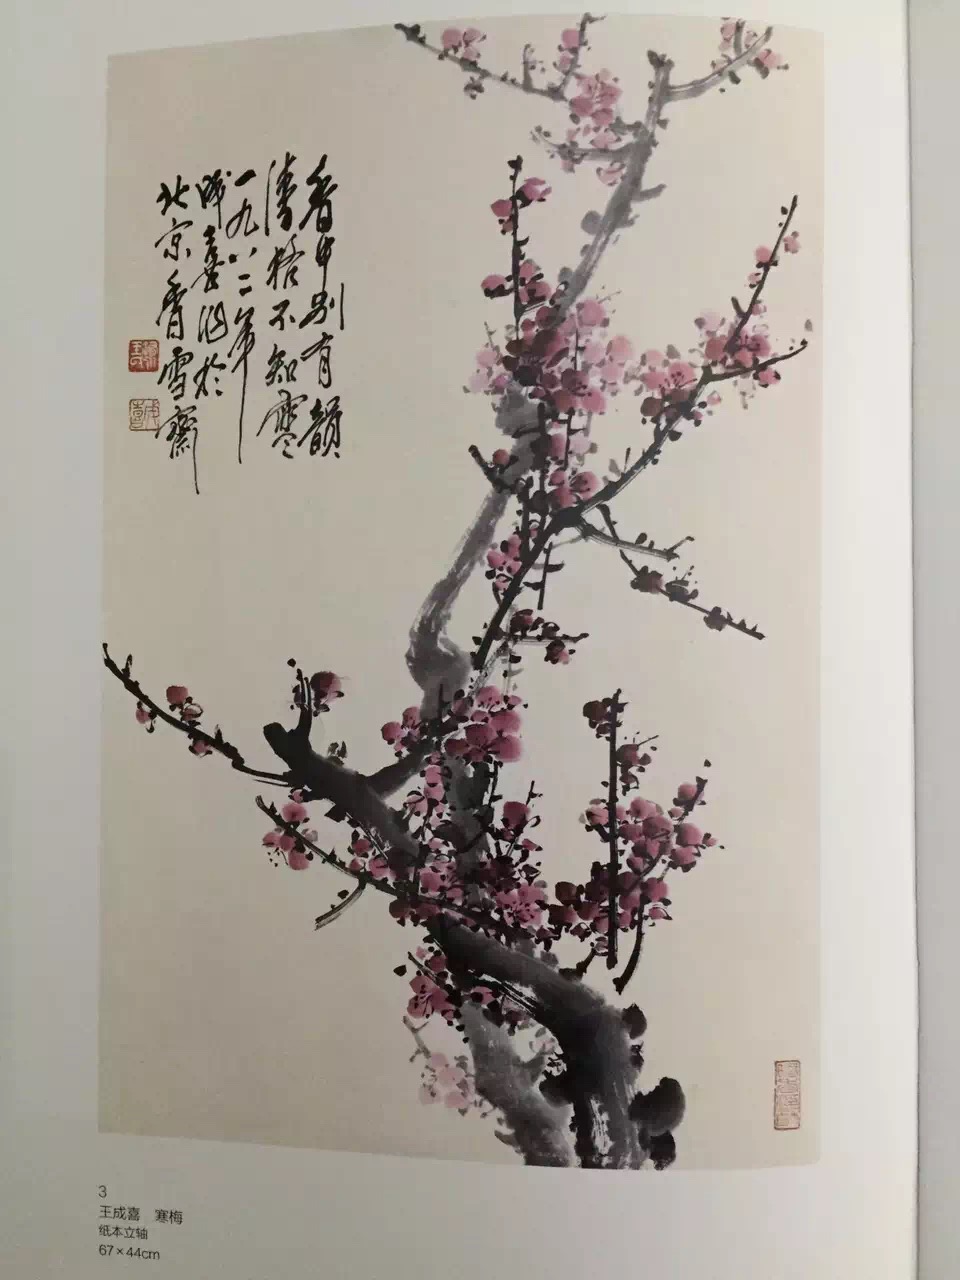 香中别有韻
清極不知寒
一九八二年
成喜写於
北京香雪齋
3
王成喜 寒梅
纸本立轴
67×44cm